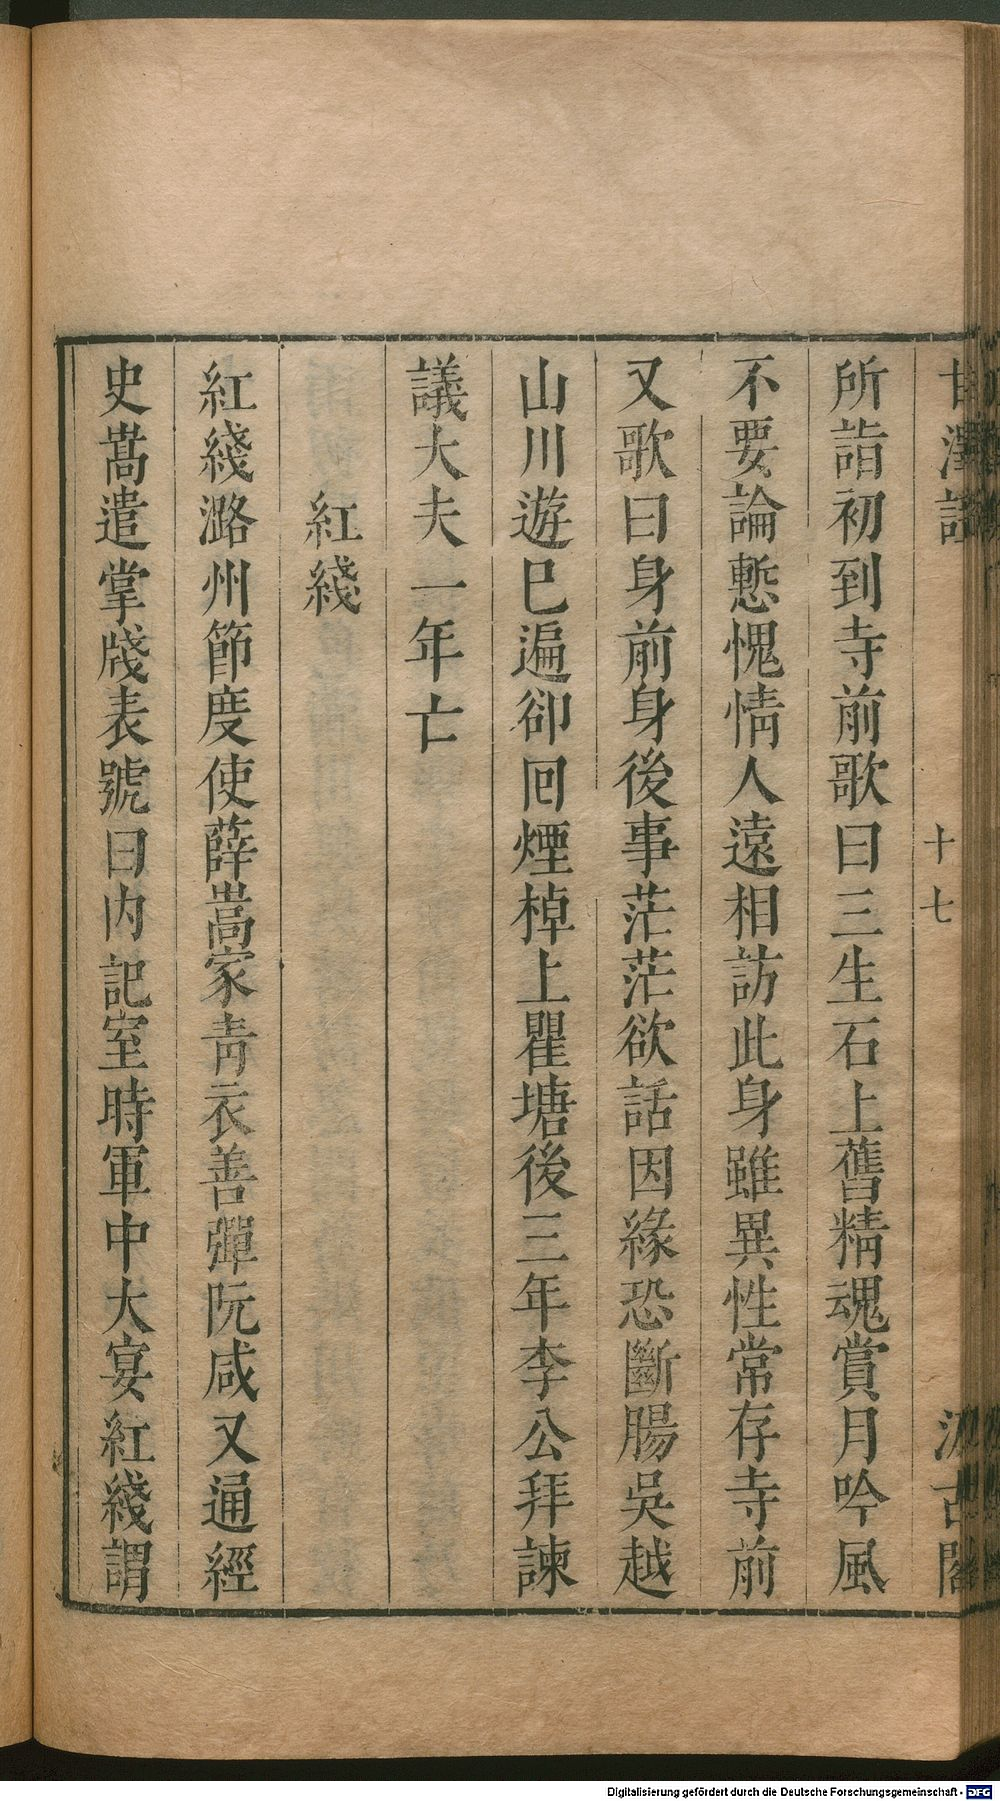 甘澤謠
十七
汲古閣
所詣初到寺前歌曰三生石上舊精魂賞月吟風
不要論慙愧情人遠相訪此身雖異性常存寺前
又歌曰身前身後事茫茫欲話因緣恐斷腸吳越
山川遊巳遍卻回煙棹上瞿塘後三年李公拜諫
議大夫一年亡
紅綫
紅綫潞州節度使薛嵩家青衣善彈阮咸又通經
史嵩遣掌牋表號曰內記室時軍中大宴紅綫謂
Digitalisierung gefördert durch die Deutsche Forschungsgemeinschaft - DFG